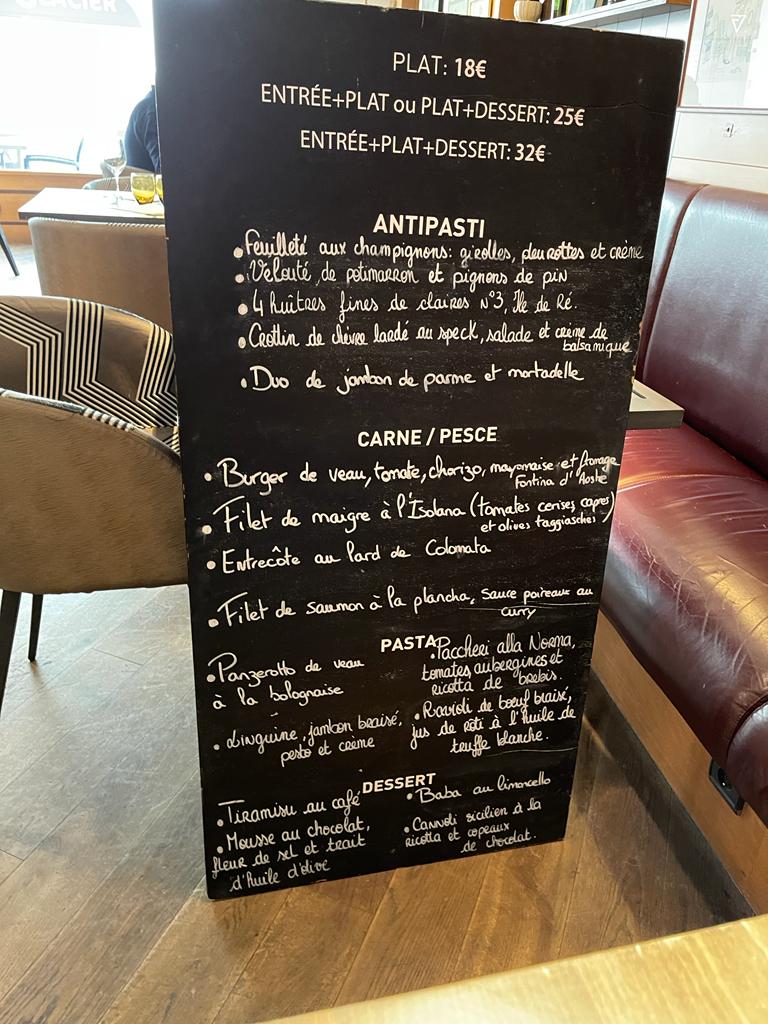 GLACIER
PLAT: 18€
ENTRÉE+PLAT ou PLAT+DESSERT: 25€
ENTRÉE+PLAT+DESSERT: 32€
ANTIPASTI
• Feuilleté aux champignons: girolles, pleurottes et crème
• Velouté de potimarron et pignons de pin
• 4 huîtres fines de claires N°3, Ile de Ré.
• Crottin de chèvre lardé au speck, salade et crème de
balsamique
• Duo de jambon de parme et mortadelle
CARNE / PESCE
• Burger de veau, tomate, chorizo, mayonnaise et fromage
Fontina d'Aoste
• Filet de maigre à l'Isolana (tomates cerises, capres
et olives taggiasches)
• Entrecôte au lard de Colonata
• Filet de saumon à la plancha, sauce poireaux au
curry
PASTA
• Panzerotto de veau
à la bolognaise
• Linguine, jambon braisé,
pesto et crème
• Paccheri alla Norma,
tomates, aubergines et
ricotta de brebis.
• Ravioli de bœuf braisé,
jus de rôti à l'huile de
truffe blanche.
DESSERT
• Tiramisu au café
• Mousse au chocolat,
fleur de sel et trait
d'huile d'olive
• Baba au limoncello
• Cannoli sicilien à la
ricotta et copeaux
de chocolat.